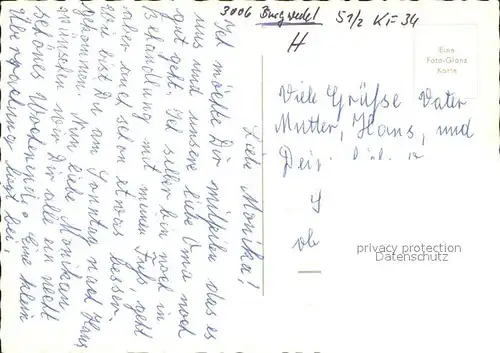 3006 Burgwedel 51/2 Ki=34
H
Eine
Foto-Glanz
Karte
Liebe Monika!
Ich möchte Dir mitteilen das es
uns und unsere liebe Oma noch
gut geht. Ich selber bin noch in
Behandlung mit meinen Fuß, geht
aber auch schon etwas besser.
bist Du am Sonntag nach Haus
gekommen. Nun, liebe Monika
wünschen wir Dir alle ein recht
schönes Wochenende. Eine kleine
Überraschung liegt bei.
Viele Grüße Vater
Mutter, Hans, und
privacy protection
Datenschutz